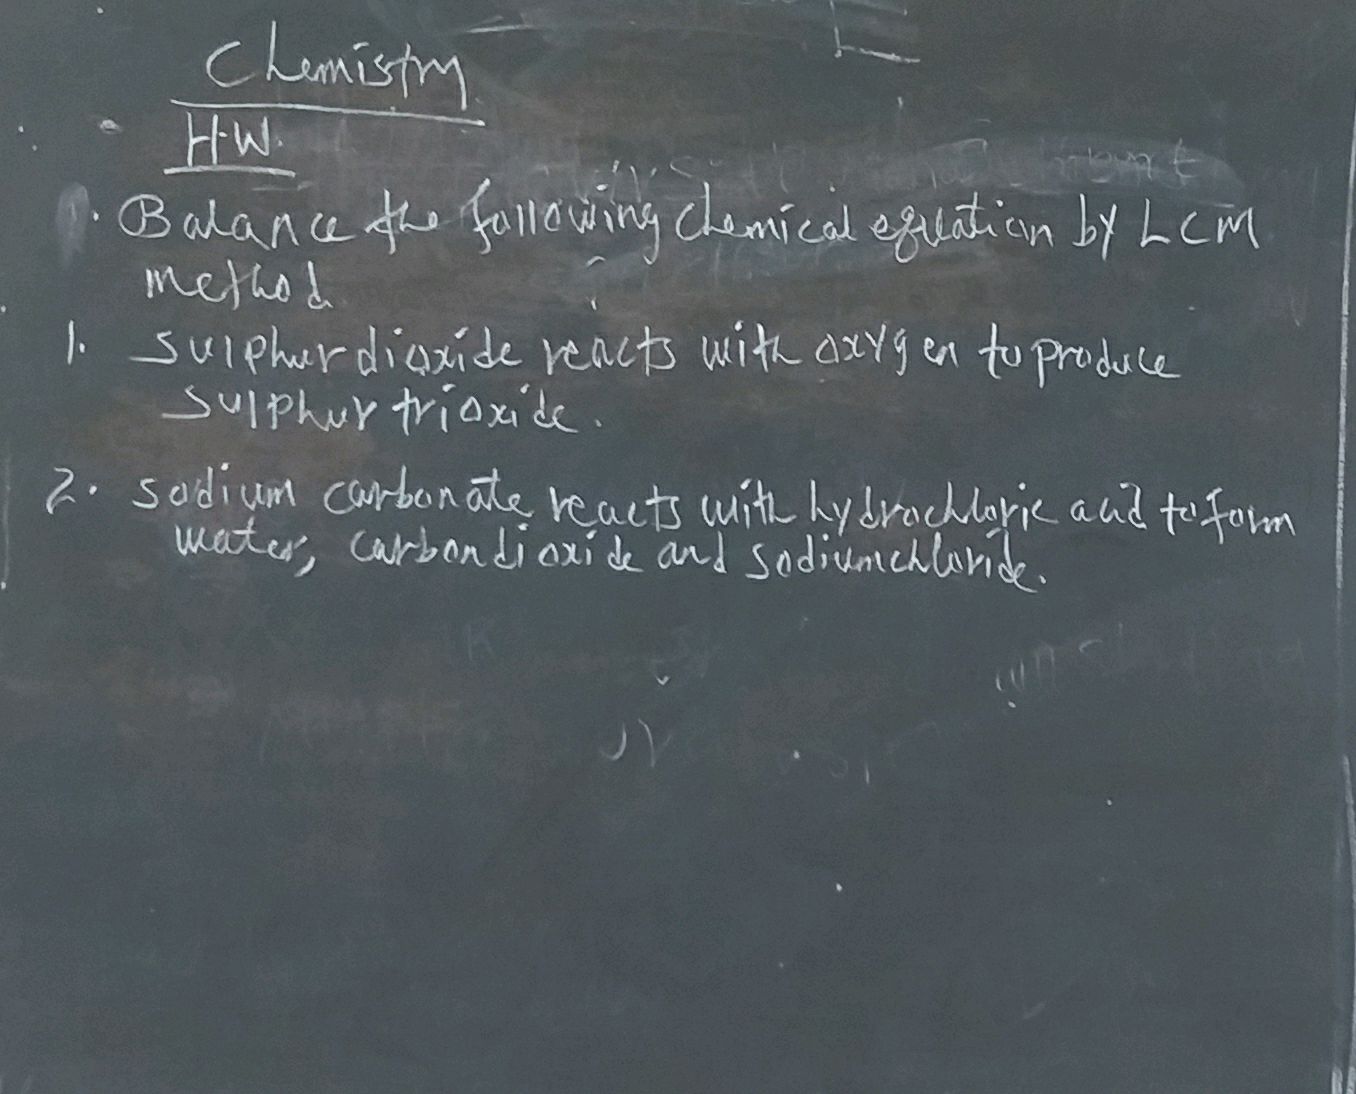 Chemistry
H.W.
. Balance the following chemical equation by LCM
method
1. Sulphur dioxide reacts with oxygen to produce
Sulphur trioxide.
2. Sodium carbonate reacts with hydrochloric acid to form
water, carbondioxide and Sodiumchloride.